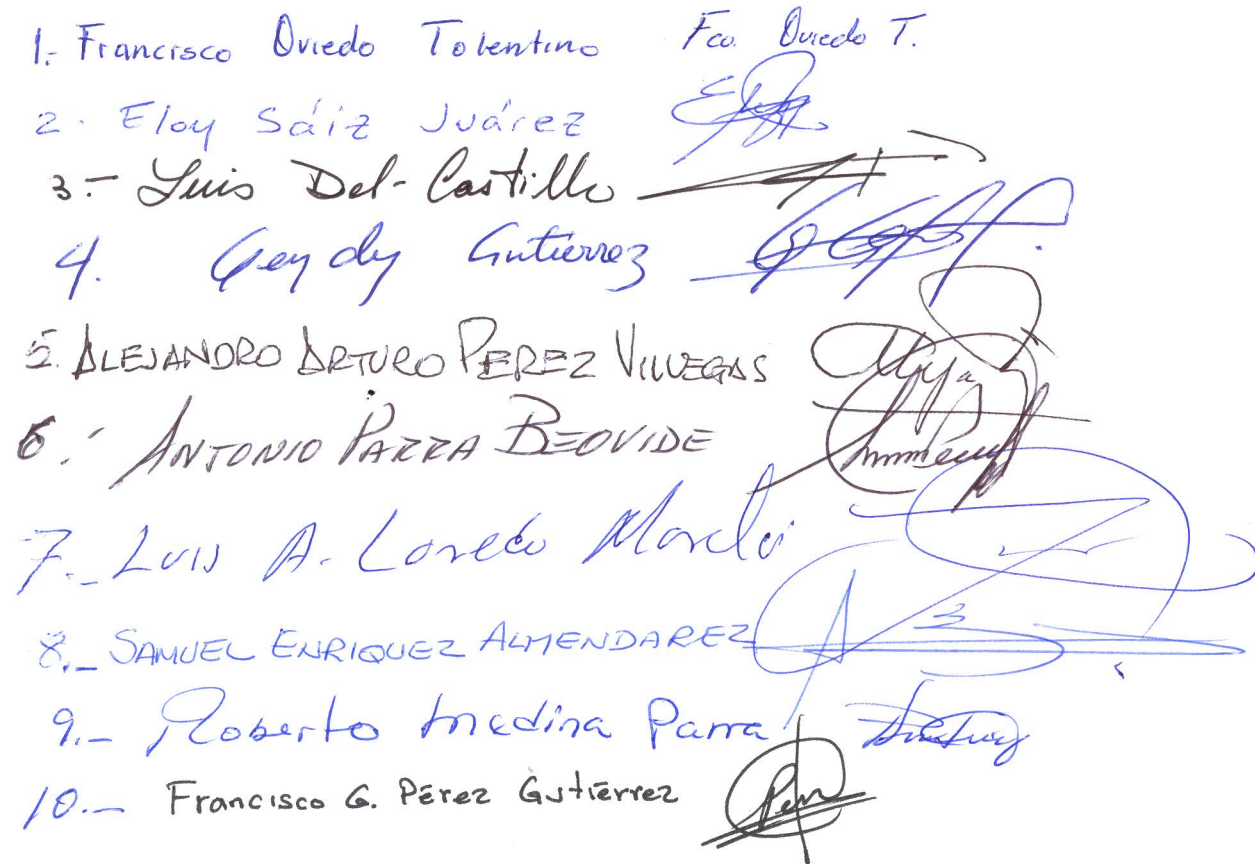 1.- Francisco Oviedo Tolentino Fco. Oviedo T.
2. Eloy Sáiz Juárez
3.- Luis Del-Castillo
4. Geydy Gutiérrez
5. ALEJANDRO ARTURO PEREZ VILLEGAS
6.- ANTONIO PARRA BEOVIDE
7.- Luis A. Loredo
8.- SAMUEL ENRIQUEZ ALMENDAREZ
9.- Roberto Medina Parra
10.- Francisco G. Pérez Gutiérrez